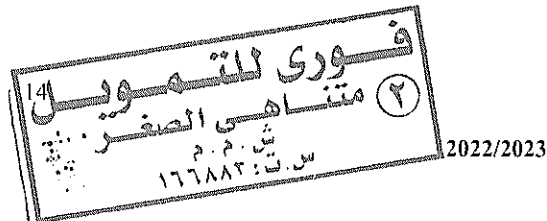 14
فورى للتمويل
متناهى الصغر
٢
ش.م.م
س.ت: ١٦٦٨٨٢
2022/2023